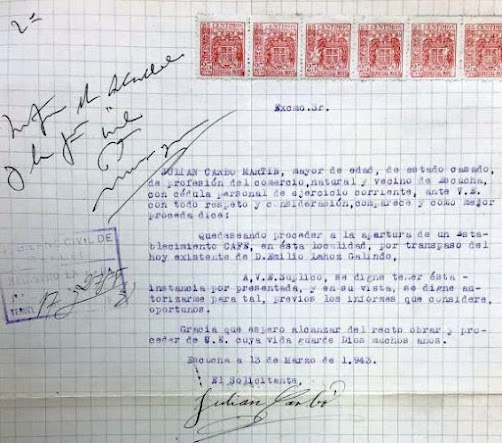 2ª
Excmo. Sr.
JULIAN CARBO MARTIN, mayor de edad, de estado casado,
de profesión del comercio, natural y vecino de Escucha,
con cédula personal de ejercicio corriente, ante V.E.
con todo respeto y consideración, comparece y como mejor
proceda dice:
Quedeseando proceder a la apertura de un esta-
blecimiento CAFE, en ésta localidad, por transpaso del
hoy existente de D. Emilio Lahoz Galindo,
A.V.E. Suplico, se digne tener ésta -
instancia por presentada, y en su vista, se digne au-
torizarme para tal, previos los informes que considere,
oportunos.
Gracia que espero alcanzar del recto obrar y pro-
ceder de U.E. cuya vida guarde Dios muchos años.
Escucha a 13 de Marzo de 1.943.
El Solicitante,
Julian Carbó
CIVIL DE
TERUEL